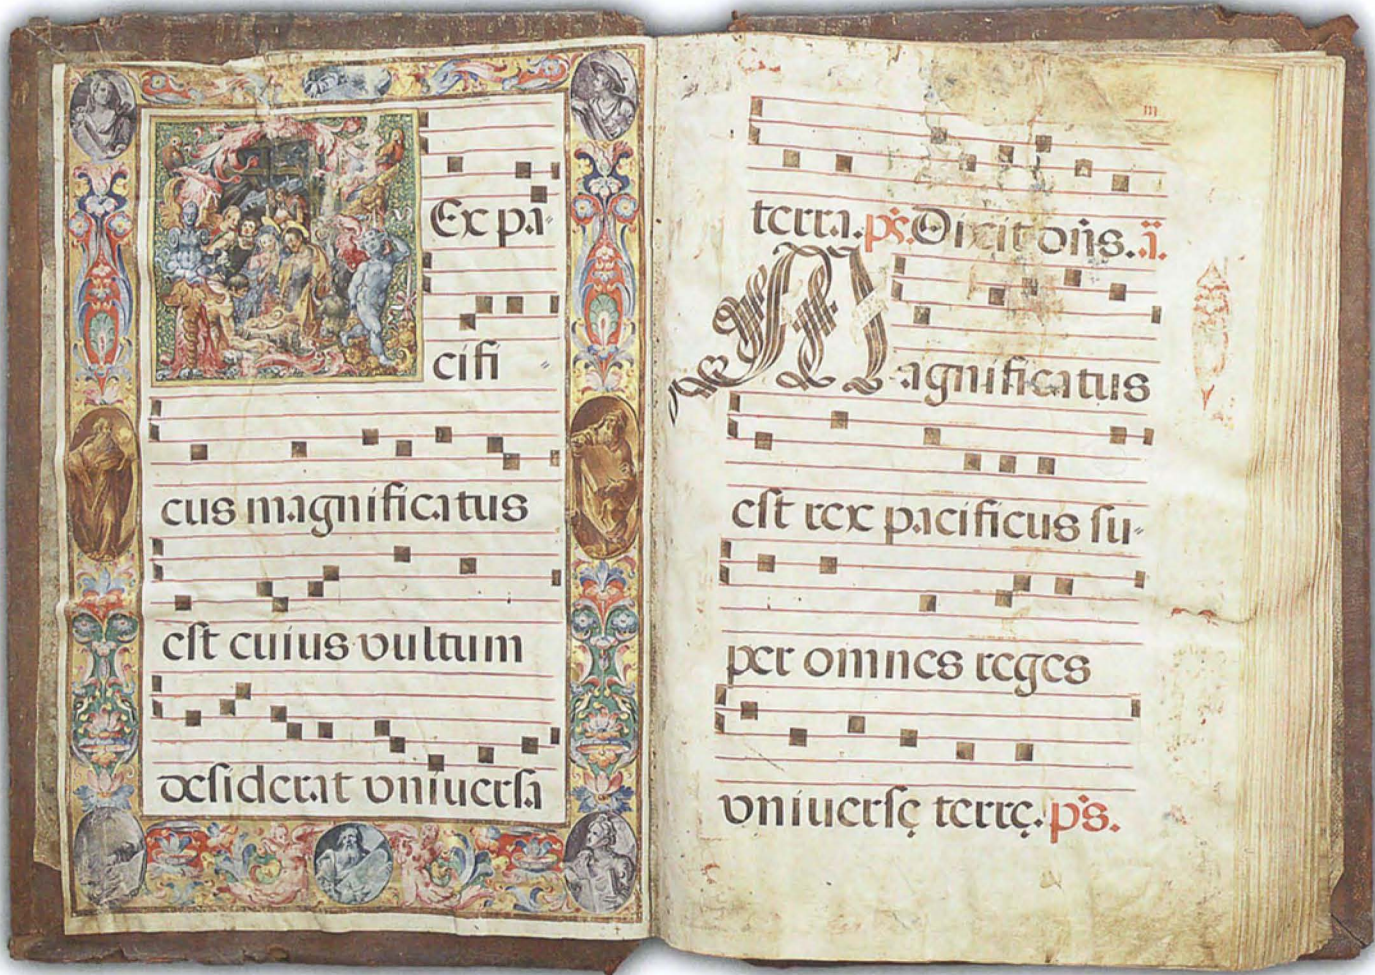 Ex pa⸗
cifi ⸗
cus magnificatus
est cuius vultum
desiderat vniuersa
terra. ps. Dixit dñs. ä.
Magnificatus
est rex pacificus su⸗
per omnes reges
vniuersę terrę. ps.